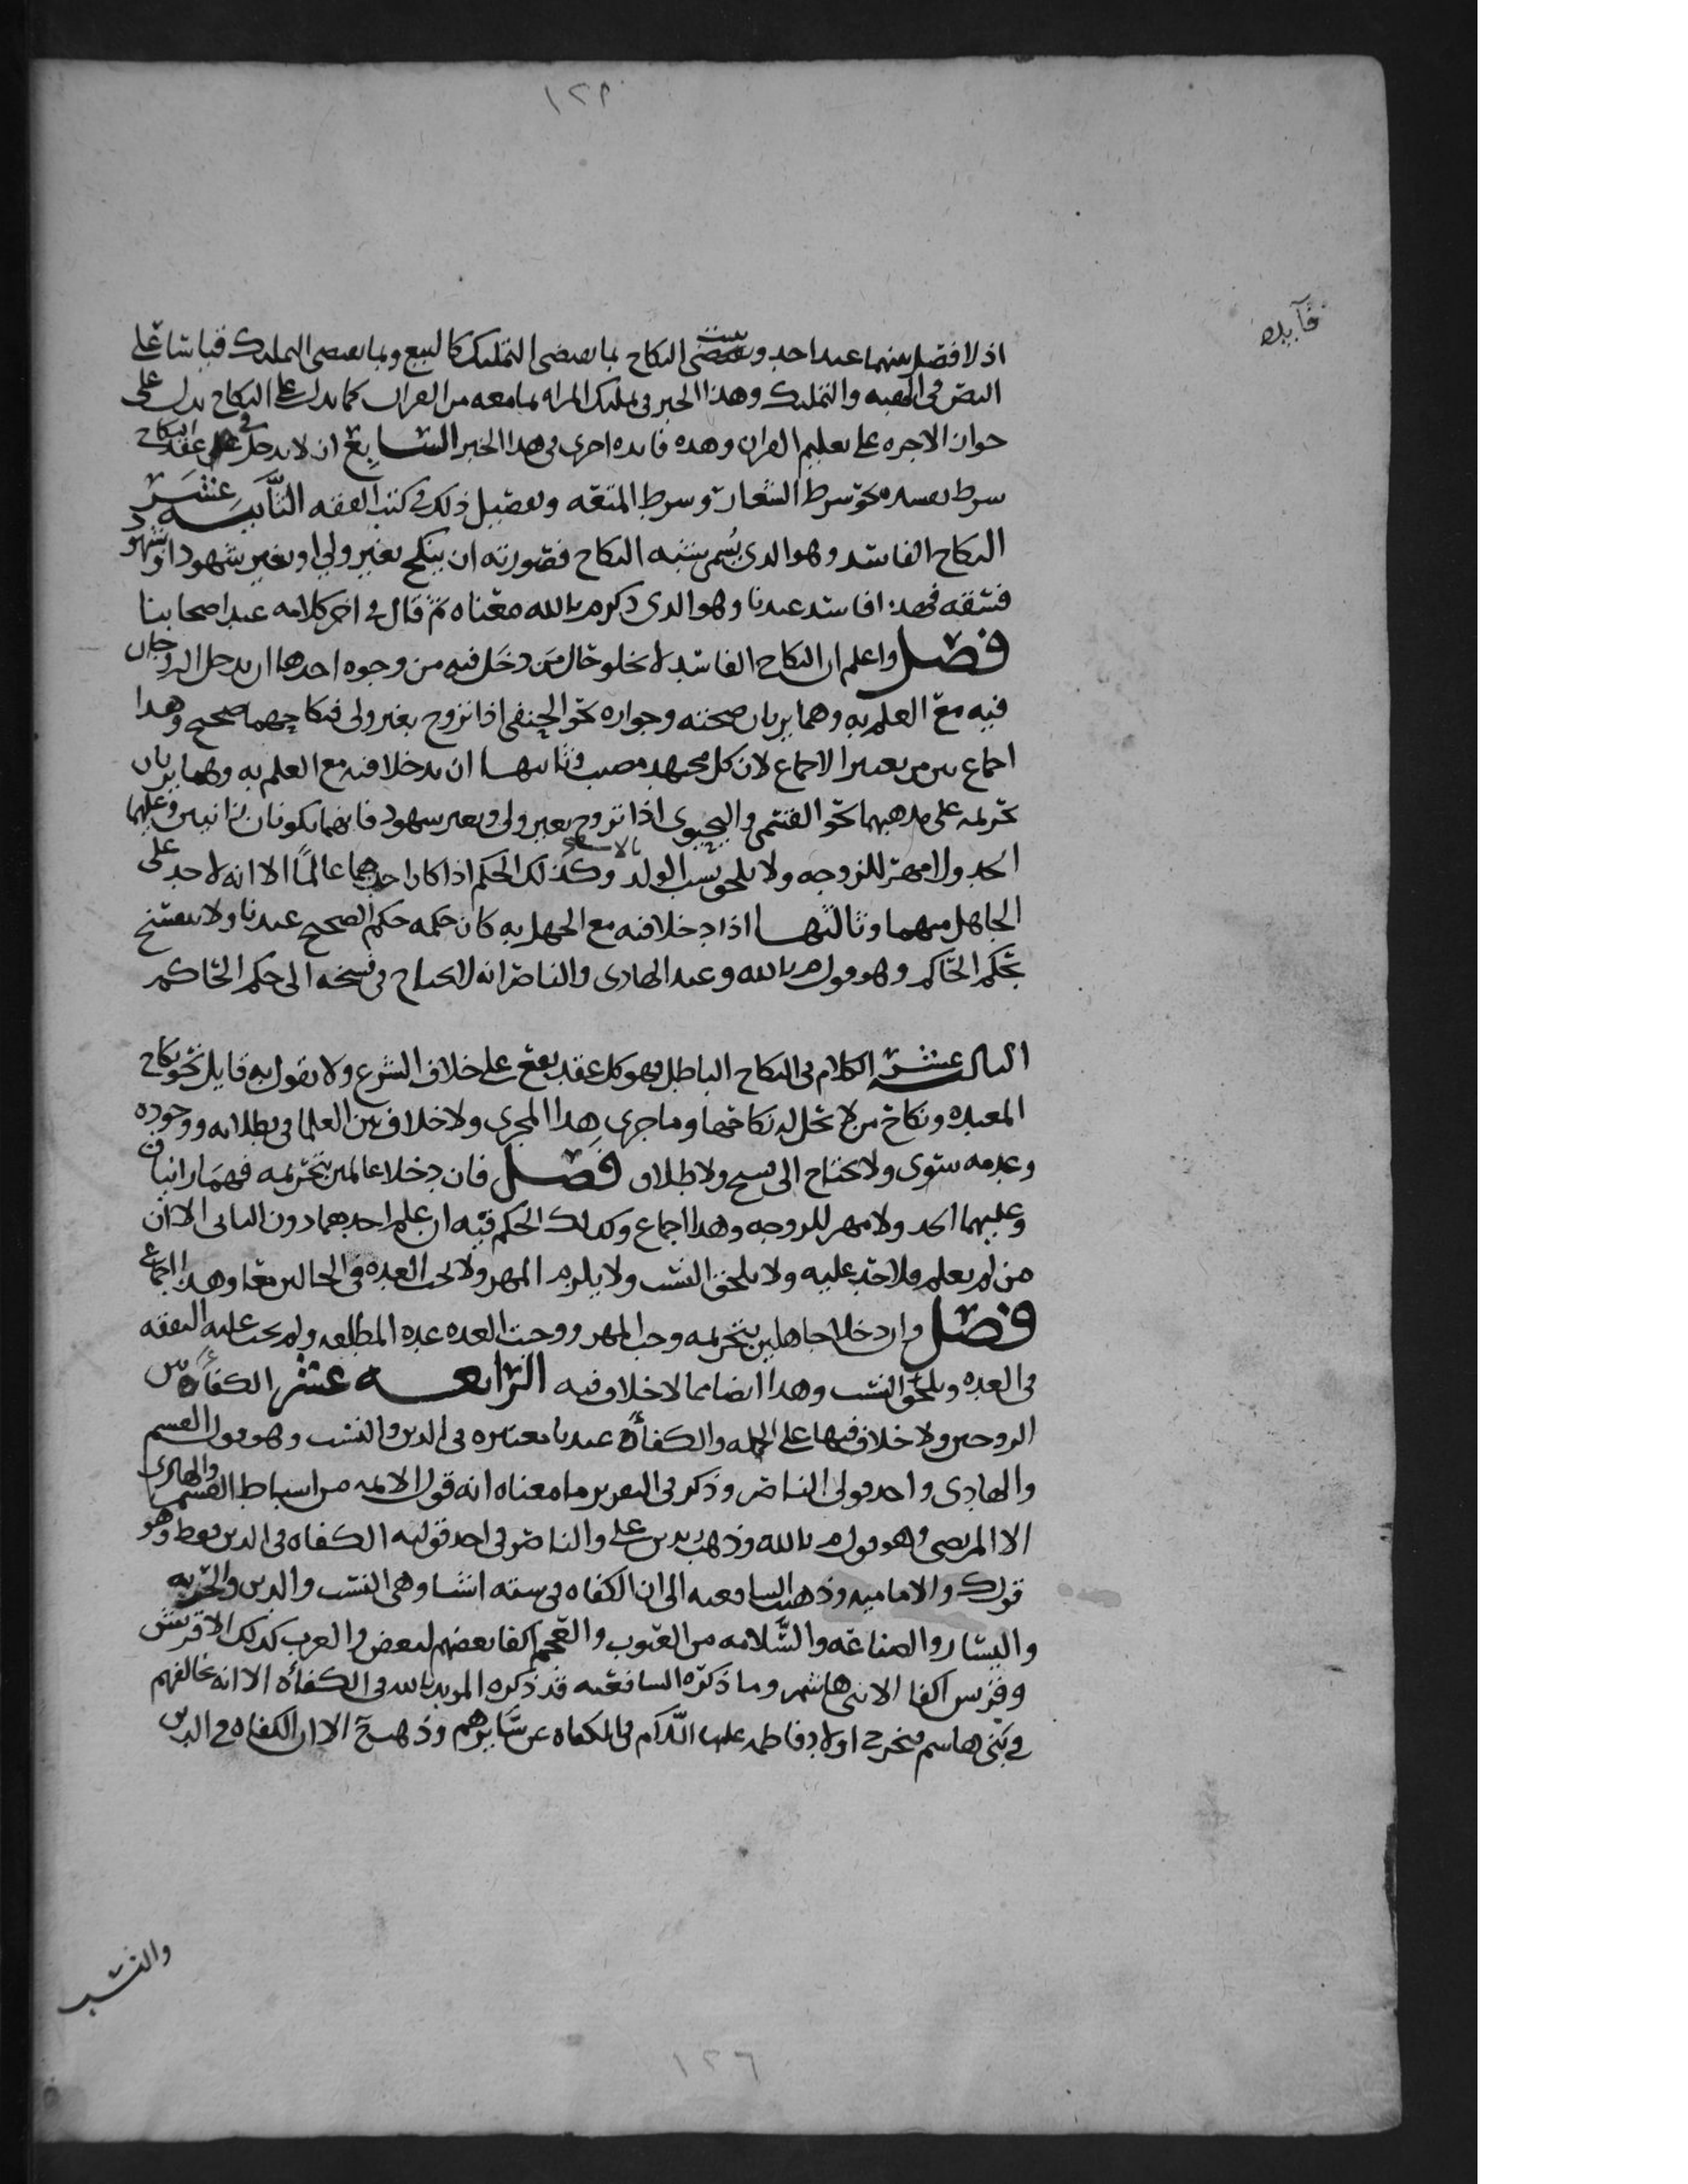 ١٢٩
فآيده
اذ لا فصل بينهما عند احد ويثبت النكاح بما يقتضي التمليك كالبيع وبما يقتضى التمليك قياسًا على
النص في الهبه والتمليك وهذا الخبر في تمليك المراه بما معه من القران كما يدل على النكاح يدل على
جواز الاجره على تعليم القران وهده فايده اخرى في هدا الخبر السابع ان لا يدخل في عقد النكاح
شرط يفسده نحو شرط الشغار وشرط المتعه وتفصيل ذلك في كتب الفقه الثانيه عشر
النكاح الفاسد وهو الدى يُسمى شبه النكاح فصورته ان ينكح بغير ولي او بغير شهود او شهود
فسقه فهذا فاسد عندنا وهو الدى ذكره م بالله معناه ثم قال في اخر كلامه عند اصحابنا
فصل واعلم ان النكاح الفاسد لا يخلو حال من دخل فيه من وجوه احدها ان يدخل الزوجان
فيه مع العلم به وهما يريان صحته وجوازه نحو الحنفى اذا تزوج بغير ولى فنكاحهما صحيح وهدا
اجماع بين من يعتبر الاجماع لان كل مجتهد مصيب وثانيها ان يدخلا فيه مع العلم به وهما يريان
تحريمه على مدهبهما نحو القسمى واليحيوى اذا تزوج بغير ولى وبغير شهود فانهما يكونان زانيين وعليهما
الحد ولا مهر للزوجه ولا يلحق نسب الولد وكذلك الحكم اذا كان احدهما عالمًا الا انه لا حد على
الجاهل منهما وثالثها اذا دخلا فيه مع الجهل به كان حكمه حكم الصحيح عندنا ولا ينفسخ
بحكم الحاكم وهو قول م بالله وعند الهادى والناصر انه لا يحتاج في فسخه الى حكم الحاكم
الثالثه عشر الكلام في النكاح الباطل وهو كل عقد يقع على خلاف الشرع ولا يقول به قايل نحو نكاح
المعتده ونكاح من لا تحل له نكاحها وما جرى هدا المجرى ولا خلاف بين العلما في بطلانه ووجوده
وعدمه سوى ولا يحتاج الى فسح ولا طلاق فصل فان دخلا عالمين بتحريمه فهما زانيان
وعليهما الحد ولا مهر للزوجه وهدا اجماع وكدلك الحكم فيه ان علم احدهما دون الثانى الا ان
من لم يعلم فلا حد عليه ولا يلحق النسب ولا يلزم المهر ولا يجب العده في الحالين معا وهدا اجماع
فصل وان دخلا جاهلين بتحريمه وجب المهر ووجبت العده عده المطلقه ولم يجب عليه النفقه
في العده ويلحق النسب وهدا ايضا مما لا خلاف فيه الرابعه عشر الكفاءة بين
الزوجين ولا خلاف فيها على الجمله والكفاءة عندنا معتبره في الدين والنسب وهو قول القسم
والهادى واحد قولى الناصر وذكر في التقرير ما معناه انه قول الايمه من اسباط القسم والهادى
الا المرتضى وهو قول م بالله وذهب زيد بن على والناصر في احد قوليه الكفاه في الدين فقط وهو
قول ك والاماميه وذهبت الشافعيه الى ان الكفاه في سته اشيا وهى النسب والدين والحريه
واليسار والصناعه والسلامه من العيوب والعجم اكفا بعضهم لبعض والعرب كدلك الا قريش
وقريش اكفا الا بنى هاشم وما ذكره الشافعيه قد ذكره المويد بالله في الكفاءة الا انه خالفهم
في بنى هاشم فخرج اولاد فاطمه عليها السلام في الكفاه عن سايرهم وذهب ح الا ان الكفاه في الدين
والنسب
١٢٦